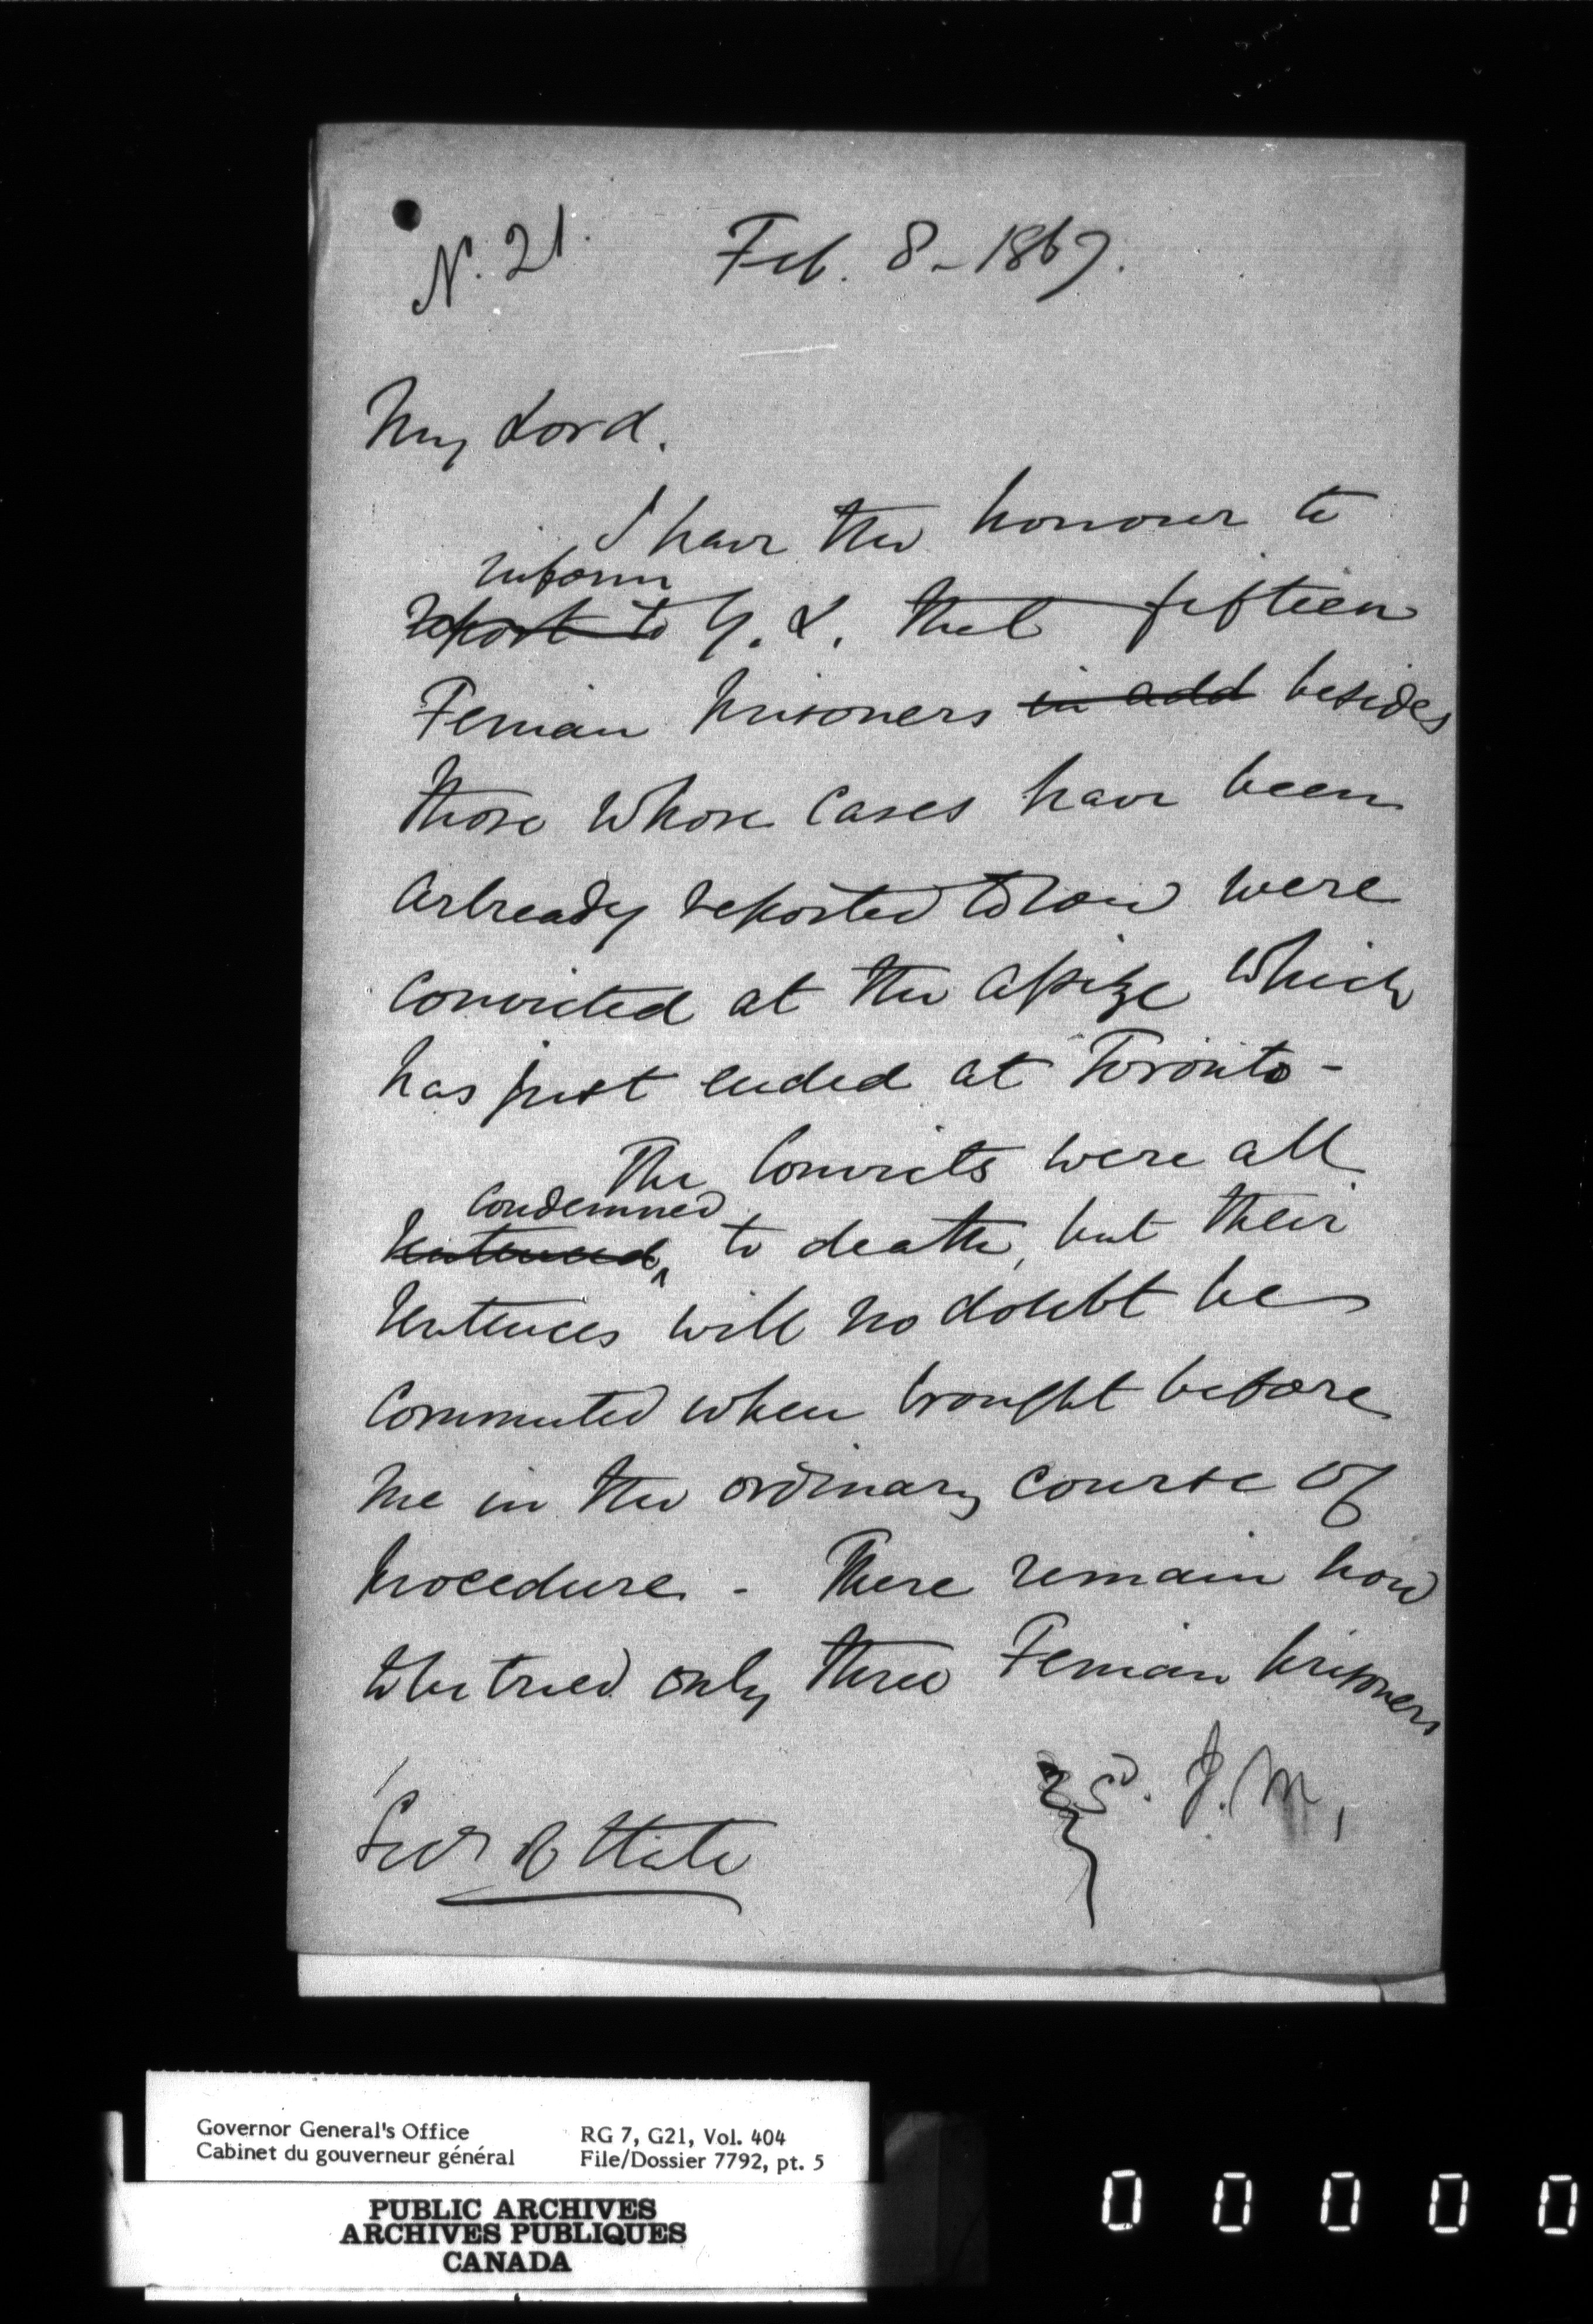 N. 21. Feb. 8 - 1867.
My Lord.
I have the honour to
inform
report to Y. L. that fifteen
Fenian prisoners in add besides
those whose cases have been
already reported to you were
convicted at the assize which
has just ended at Toronto -
The Convicts were all
condemned
sentenced to death, but their
sentences will no doubt be
commuted when brought before
me in the ordinary course of
procedure - There remain now
to be tried only three Fenian prisoners
J. M.
Secy of State
Governor General's Office RG 7, G21, Vol. 404
Cabinet du gouverneur général File/Dossier 7792, pt. 5
PUBLIC ARCHIVES
ARCHIVES PUBLIQUES
CANADA
0 0 0 0 0